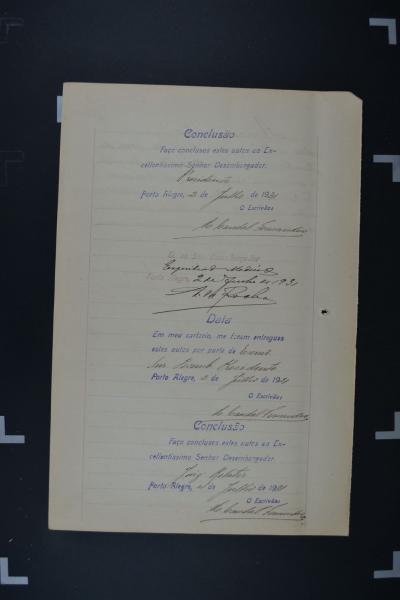 Conclusão
Faço conclusos estes autos ao Ex-
cellentissimo Senhor Desembargador.
Presidente
Porto Alegre, 2 de Julho de 1931
O Escrivão
Porto Alegre, 2 de Julho de 1931
Data
Em meu cartorio, me foram entregues
estes autos por parte do Exmo.
Snr. Desemb. Presidente
Porto Alegre, 2 de Julho de 1931
O Escrivão
Conclusão
Faço conclusos estes autos ao Ex-
cellentissimo Senhor Desembargador.
Juiz Relator
Porto Alegre, 2 de Julho de 1931
O Escrivão